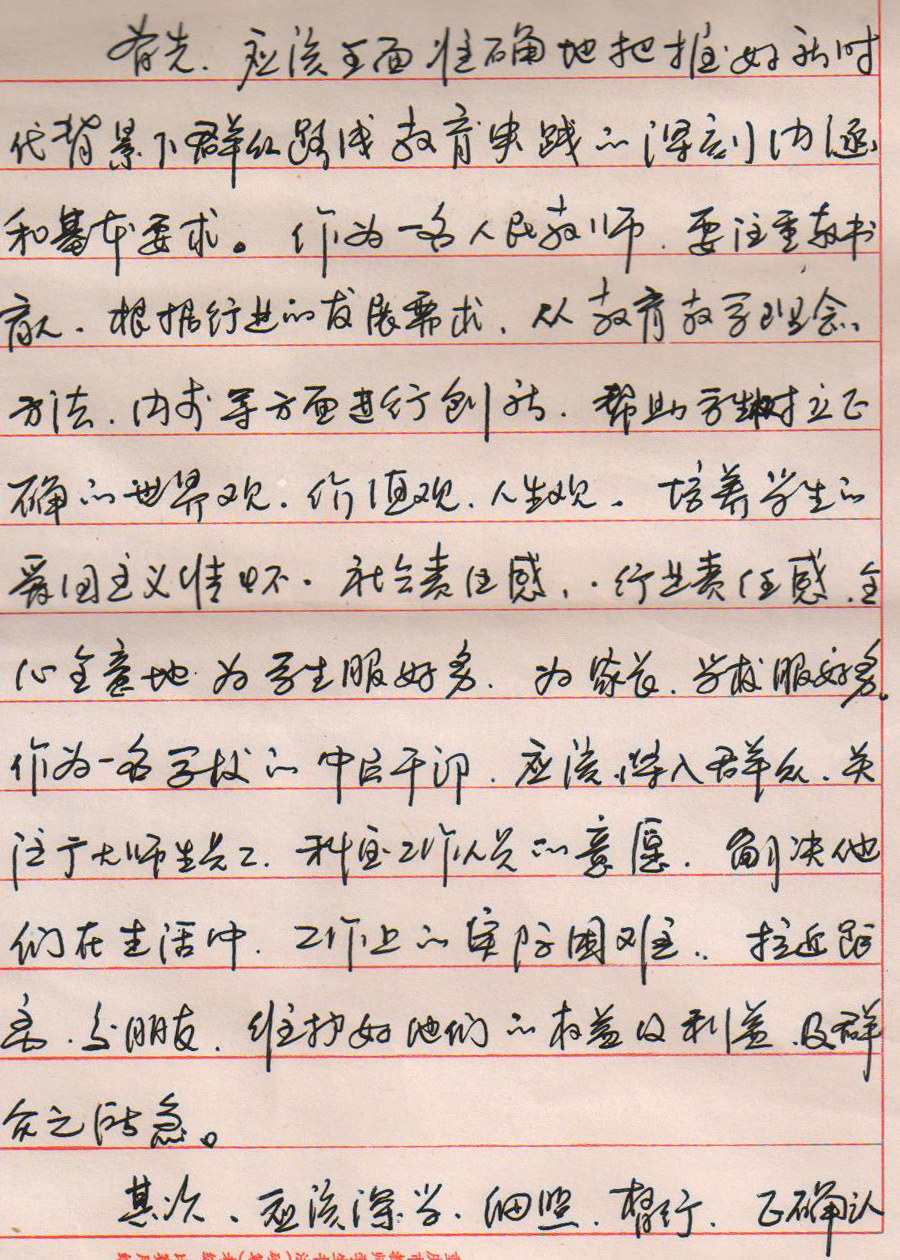 首先、应该全面准确地把握好新时
代背景下群众路线教育实践的深刻内涵
和基本要求。作为一名人民教师、要注重教书
育人、根据行业的发展需求、从教育教学理念、
方法、内求等方面进行创新、帮助学生树立正
确的世界观、价值观、人生观、培养学生的
爱国主义情怀、社会责任感、行业责任感、全
心全意地为学生服好务、为家长、学校服好务。
作为一名学校的中层干部、应该深入群众、关
注广大师生员工、科室工作人员的意愿、解决他
们在生活中、工作上的实际困难、拉近距
离、交朋友、维护好他们的权益及利益、及群
众之所急。
其次、应该深学、细照、督行、正确认